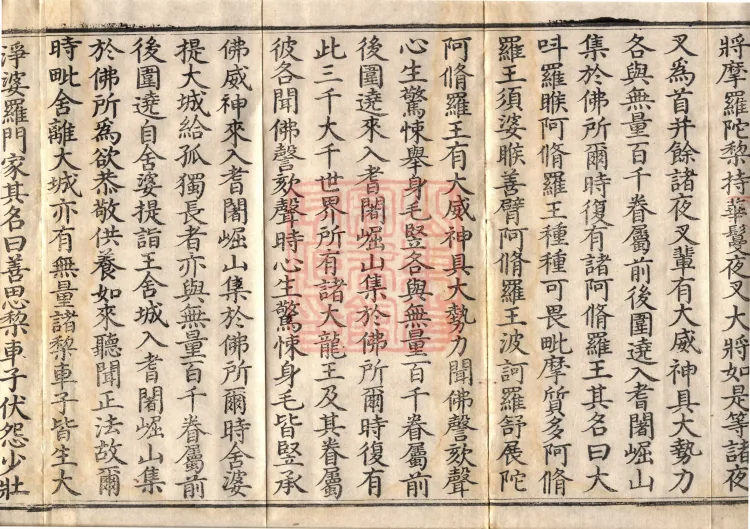 將摩羅陀黎持華鬘夜叉大將如是等諸夜
叉爲首并餘諸夜叉輩有大威神具大勢力
各與無量百千眷屬前後圍遶入耆闍崛山
集於佛所爾時復有諸阿脩羅王其名曰大
吽羅睺阿脩羅王種種可畏毗摩質多阿脩
羅王須婆睺善臂阿脩羅王波訶羅舒展陀
阿脩羅王有大威神具大勢力聞佛謦欬聲
心生驚悚舉身毛竪各與無量百千眷屬前
後圍遶來入耆闍崛山集於佛所爾時復有
此三千大千世界所有諸大龍王及其眷屬
彼各聞佛謦欬聲時心生驚悚身毛皆竪承
佛威神來入耆闍崛山集於佛所爾時舍婆
提大城給孤獨長者亦與無量百千眷屬前
後圍遶自舍婆提詣王舍城入耆闍崛山集
於佛所爲欲恭敬供養如來聽聞正法故爾
時毗舍離大城亦有無量諸黎車子皆生大
淨婆羅門家其名曰善思黎車子伏怨少壯